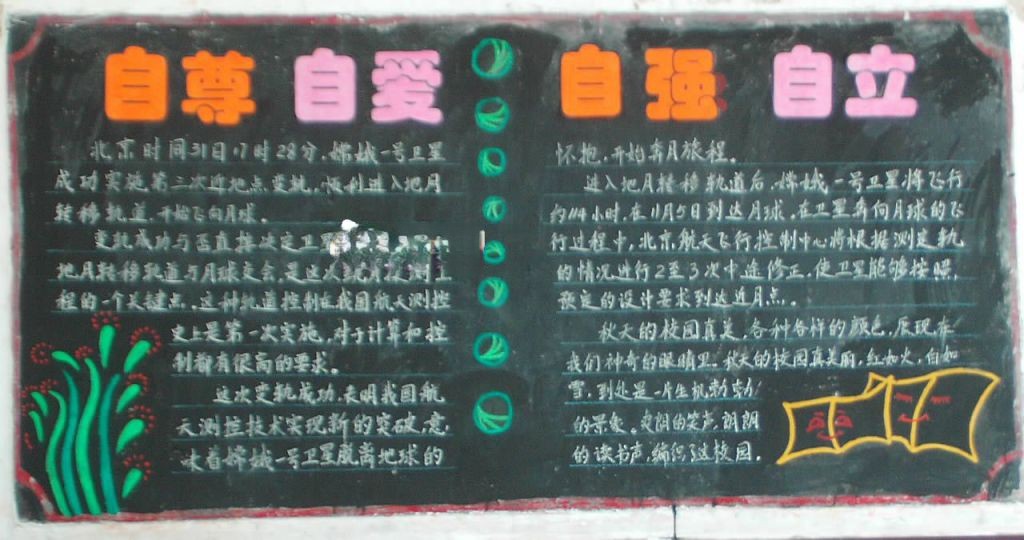 自尊 自爱 自强 自立
北京时间31日17时28分，嫦娥一号卫星
成功实施第二次近地点变轨，顺利进入地月
转移轨道，开始飞向月球。
变轨成功与否直接决定卫
地月转移轨道与月球交会，是这次
程的一个关键点，这种轨道控制在我国航天测控
史上是第一次实施，对于计算和控
制都有很高的要求。
这次变轨成功，表明我国航
天测控技术实现新的突破，意
味着嫦娥一号卫星脱离地球的
怀抱，开始奔月旅程。
进入地月转移轨道后，嫦娥一号卫星将飞行
约114小时，在11月5日到达月球。在卫星奔向月球的飞
行过程中，北京航天飞行控制中心将根据测定轨
的情况进行2至3次中途修正，使卫星能够按照
预定的设计要求到达近月点。
秋天的校园真美，各种各样的颜色，展现在
我们神奇的眼睛里。秋天的校园真美丽，红如火，白如
雪，到处是一片生机勃勃
的景象。爽朗的笑声，朗朗
的读书声，编织了这校园。